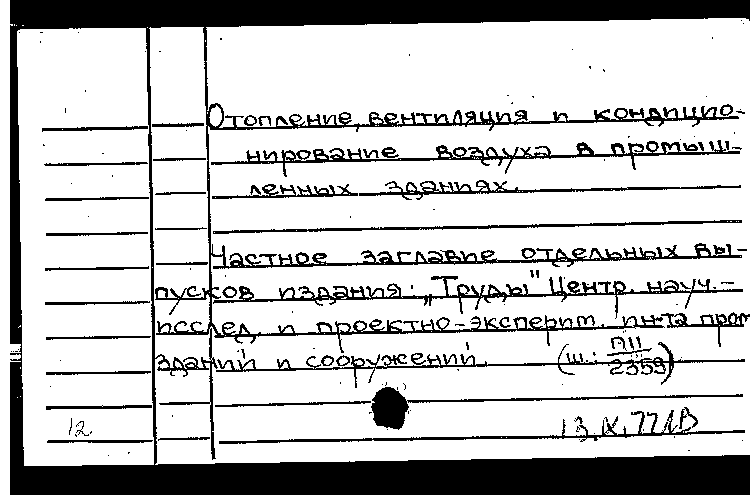 Отопление, вентиляция и кондицио-
нирование воздуха в промыш-
ленных зданиях.
Частное заглавие отдельных вы-
пусков издания: „Труды" Центр. науч.-
исслед. и проектно-эксперим. ин-та пром
зданий и сооружений. (ш.: П11/2359)
12
13.IX.77